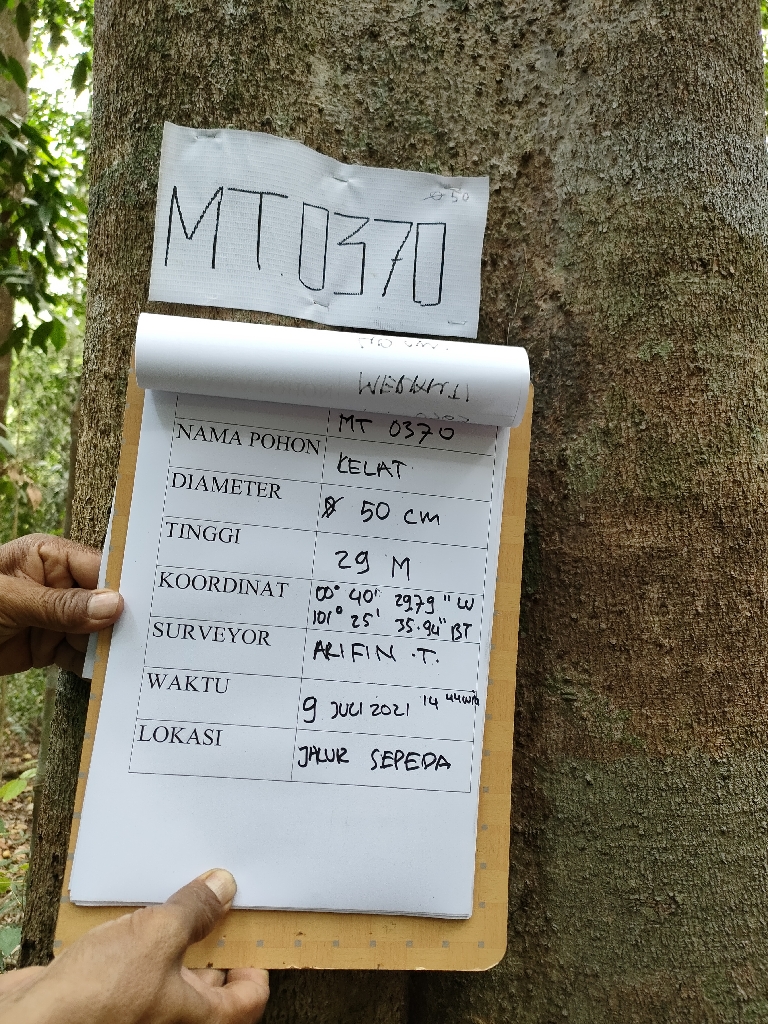 ø 50
MT.0370
MT 0370
NAMA POHON KELAT
DIAMETER ø 50 cm
TINGGI 29 M
KOORDINAT 00° 40' 2979" LU
101° 25' 35.94" BT
SURVEYOR ARIFIN .T.
WAKTU 9 JULI 2021 14 44 WIB
LOKASI JALUR SEPEDA